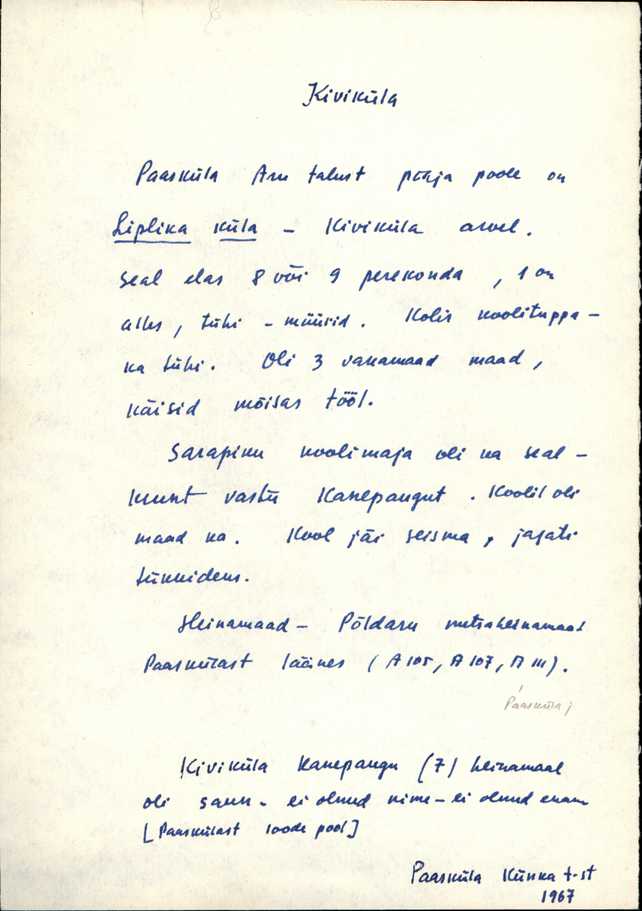 Kiviküla
Paasküla Aru talust põhja poole on
Liplika küla – Kiviküla arvel.
Seal elas 8 või 9 perekonda, 1 on
alles, tühi – müürid. Kolis koolituppa –
ka tühi. Oli 3 vakamaad maad,
käisid mõisas tööl.
Sarapiku koolimaja oli ka seal –
kunnt vastu Kanepangut. Koolil oli
maad ka. Kool jäi seisma, jagati
tükkideks.
Heinamaad – Põldaru metsaheinamaad
Paaskülast läänes (A 105, A 107, A 111).
Paasküla
Kiviküla Kanepangu (7) heinamaal
oli saun – ei olnud nime – ei olnud enam
[Paaskülast loode pool]
Paasküla Künka t-st
1967